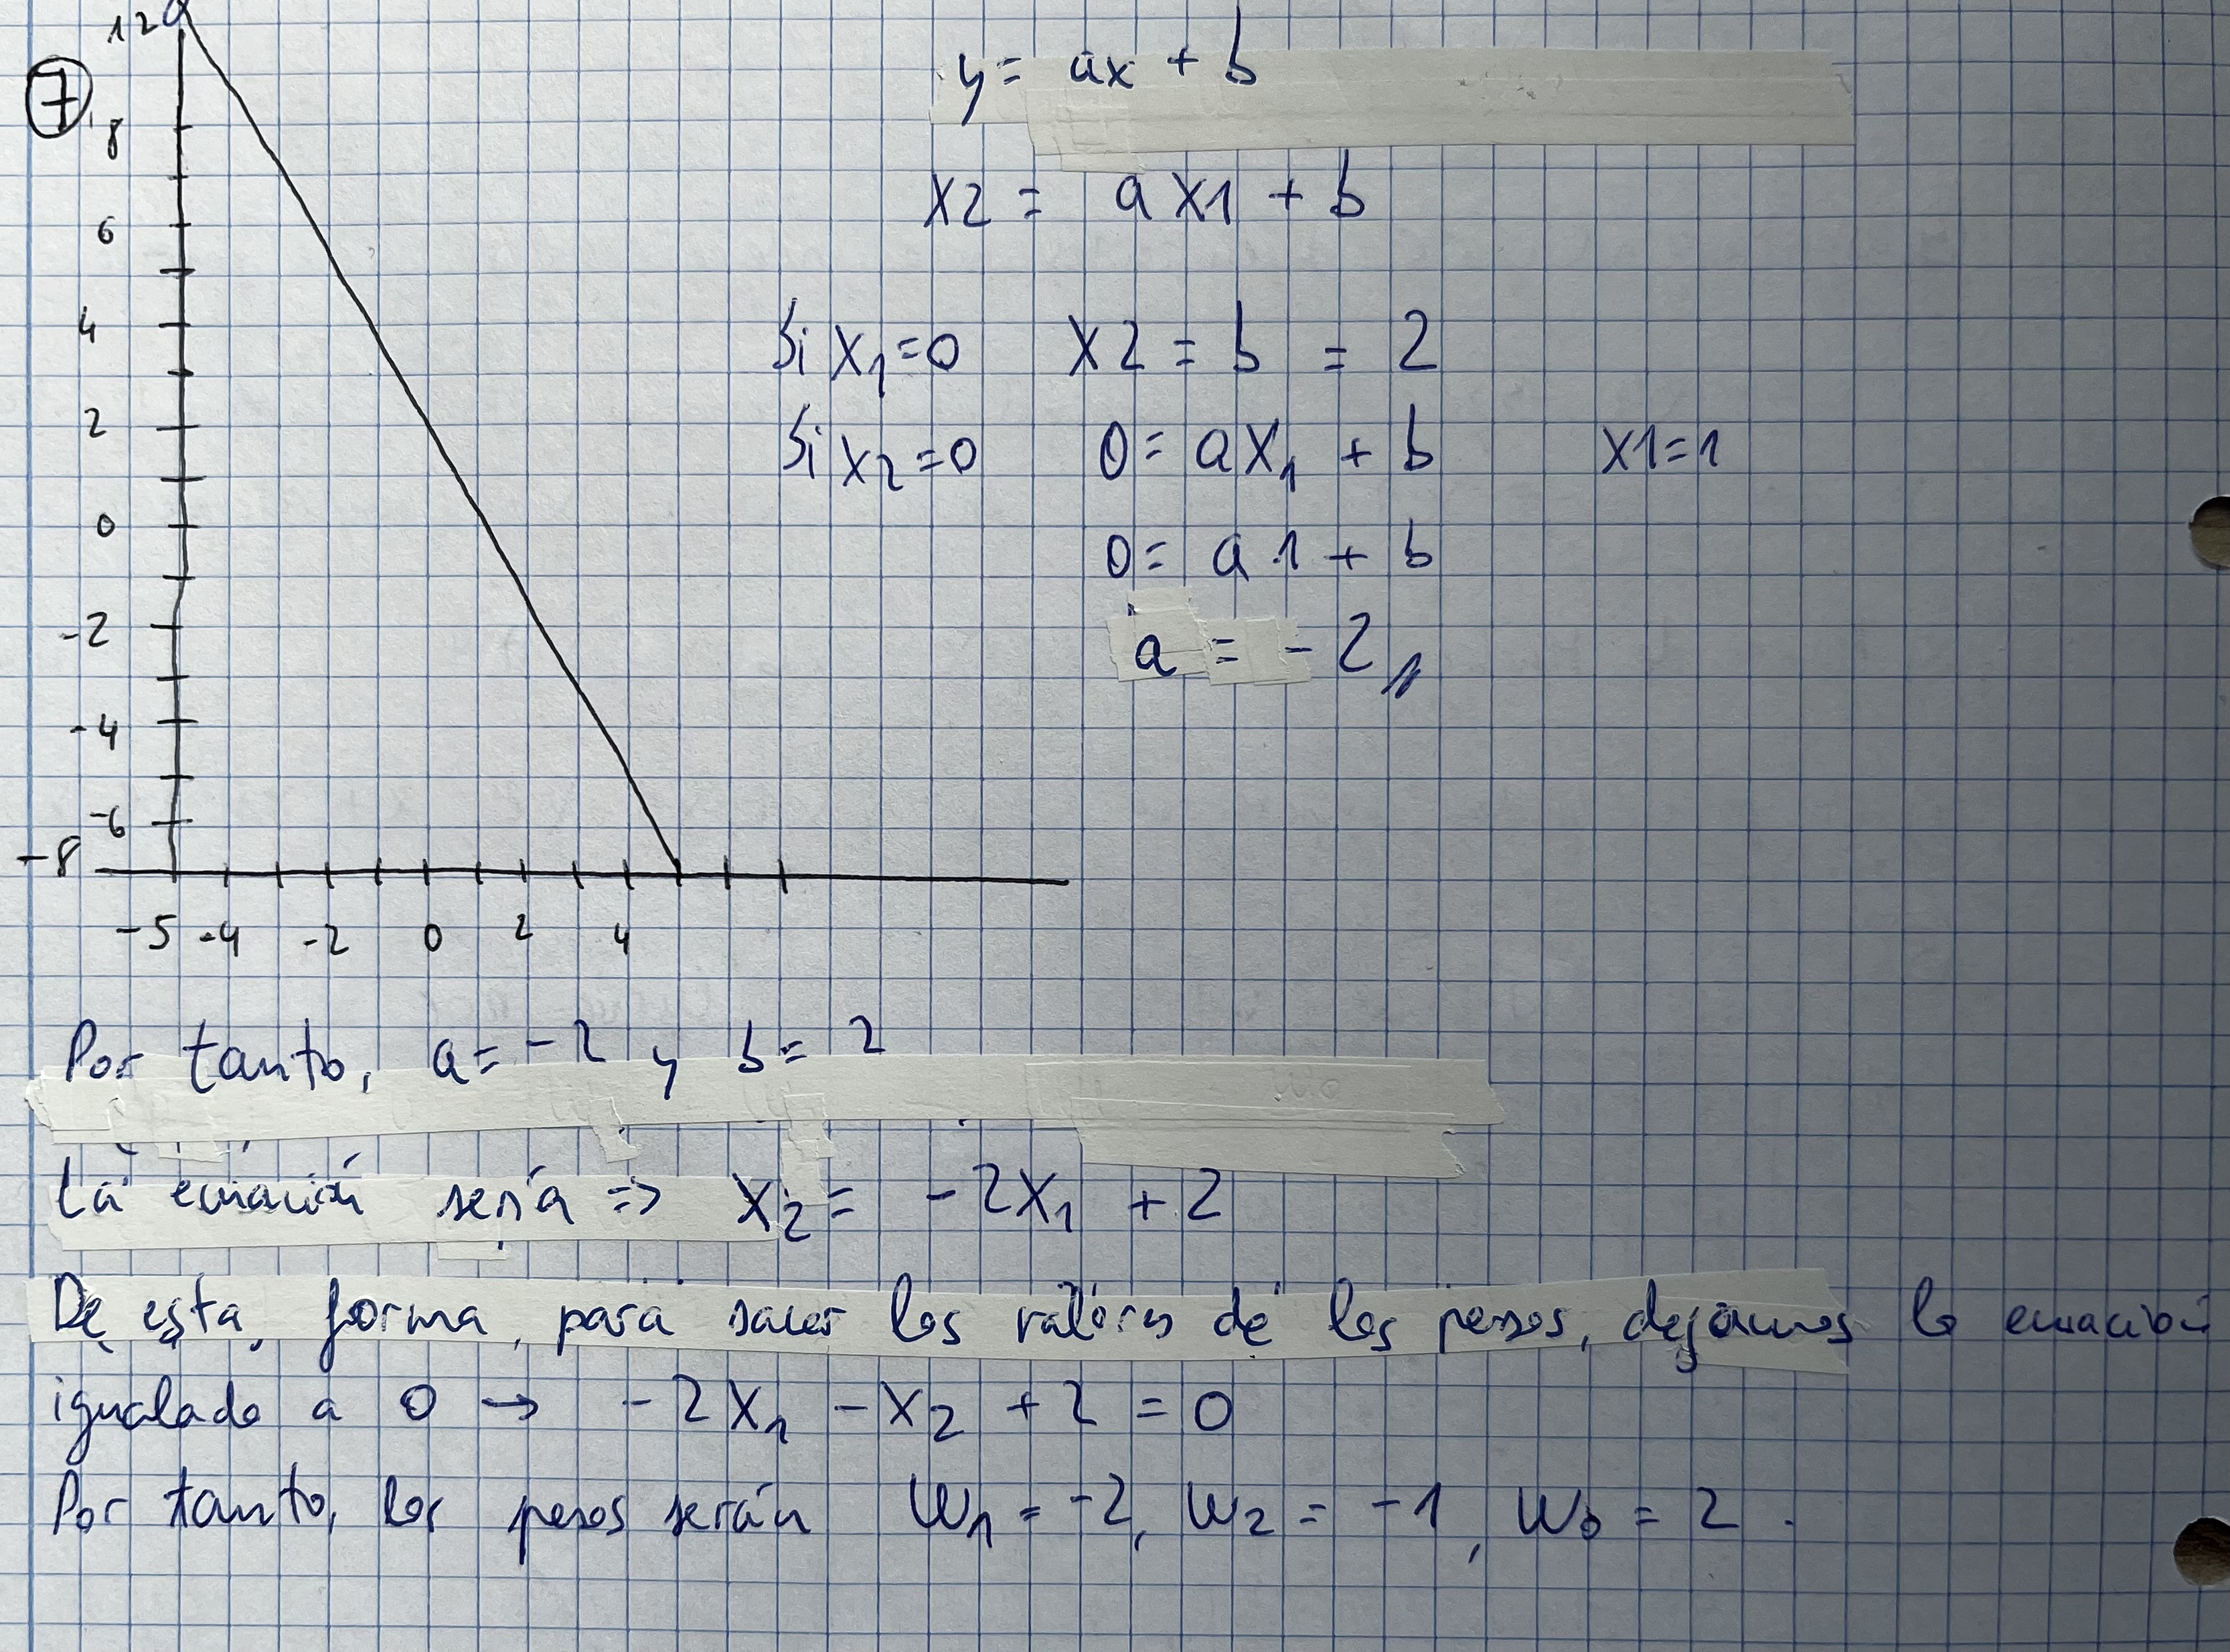 12
7
8
6
4
2
0
-2
-4
-6
-8
-5 -4 -2 0 2 4
y = ax + b
x2 = ax1 + b
Si x1=0 x2 = b = 2
Si x2=0 0= ax1 + b x1=1
0= a1 + b
a = -2
Por tanto, a= -2 y b= 2
La ecuación sería => x2= -2x1 +2
De esta forma, para sacar los valores de los pesos, dejamos la ecuación
igualada a 0 → -2x1 -x2 +2 =0
Por tanto, los pesos serán w1 = -2, w2 = -1, w0 = 2.